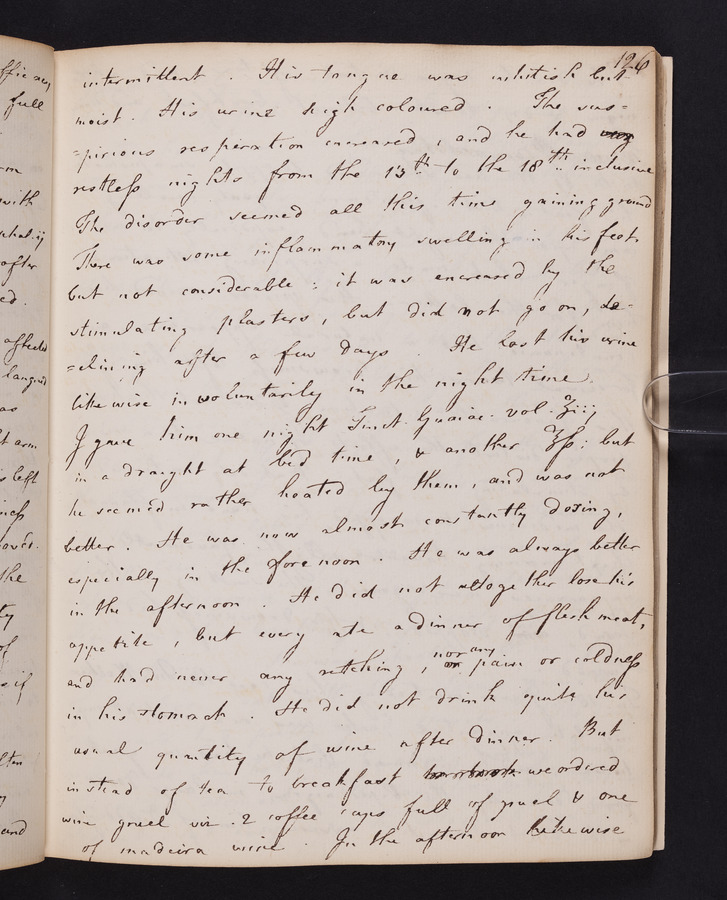 126
intermittent. His tongue was whitish but
moist. His urine high coloured. The sus=
=pirious respiration encreased, and he had
restless nights from the 13th to the 18th inclusive
The disorder seemed all this time gaining ground
There was some inflammatory swelling in his feet
but not considerable: it was encreased by the
stimulating plasters, but did not go on, de-
=clining after a few days. He lost his urine
likewise involuntarily in the night time.
I gave him one night Tinct. Guaiac. vol. ʒiii,
in a draught at bed time, & another ℥ß: but
he seemed rather heated by them, and was not
better. He was now almost constantly dozing,
especially in the forenoon. He was always better
in the afternoon. He did not altogether lose his
appetite, but every ate a dinner of flesh meat,
and had never any retching, nor any pain or coldness
in his stomach. He did not drink quite his
usual quantity of wine after dinner. But
instead of tea to breakfast we ordered
wine gruel viz. 2 coffee cups full of gruel & one
of madeira wine. In the afternoon likewise
ffic acy
full
rm
with
after
ed.
affected
languid
as
t arm
s left
ness
the
ty
of
s if
ften
and